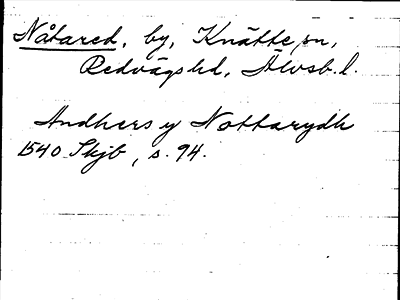 Nåtared, by, Knätte sn,
Redvägs hd, Älvsb. l.
Andhers y Nottarydh
1540 Skjb, s. 94.